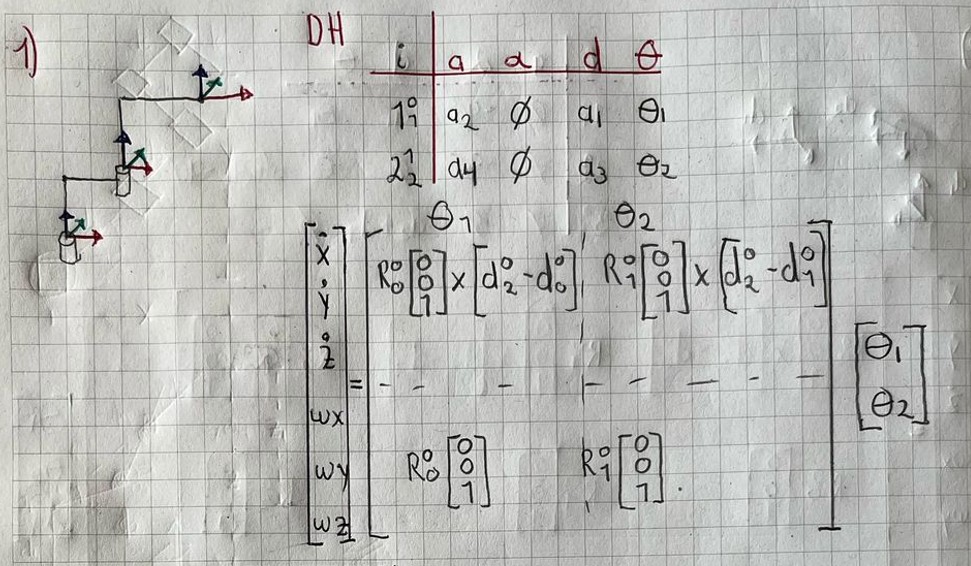 1)
DH
i a α d θ
1⁰₁ a₂ ∅ a₁ θ₁
2¹₂ a₄ ∅ a₃ θ₂
θ₁ θ₂
[ẋ ẏ ż ωx ωy ωz] = [R⁰₀ [0 0 1] × [d⁰₂ - d⁰₀] ¦ R⁰₁ [0 0 1] × [d⁰₂ - d⁰₁]
- - - - - - - -
R⁰₀ [0 0 1] R⁰₁ [0 0 1].] [θ₁ θ₂]